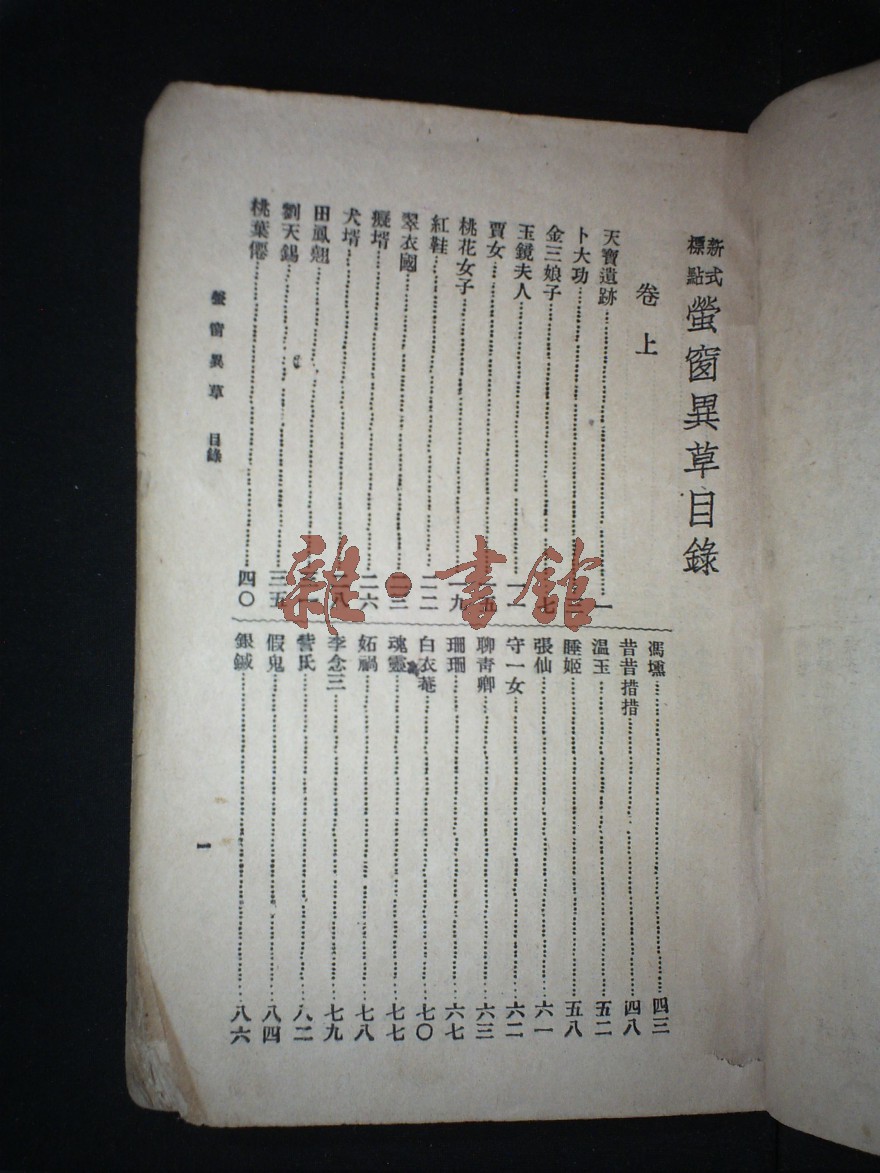 新式標點 螢窗異草目錄
卷上
天寶遺跡 一
卜大功
金三娘子 七
玉鏡夫人 一一
賈女 一五
桃花女子 一九
紅鞋 二二
翠衣國 二三
癡壻 二六
犬壻 二八
田鳳翹 三一
劉天錫 三五
桃葉僊 四〇
馮壎 四三
昔昔措措 四八
温玉 五二
睡姬 五八
張仙 六一
守一女 六二
聊青卿 六三
珊珊 六七
白衣菴 七〇
魂靈 七七
妬禍 七八
李念三 七九
訾氏 八二
假鬼 八四
銀鍼 八六
螢窗異草 目錄
一
雜·書館